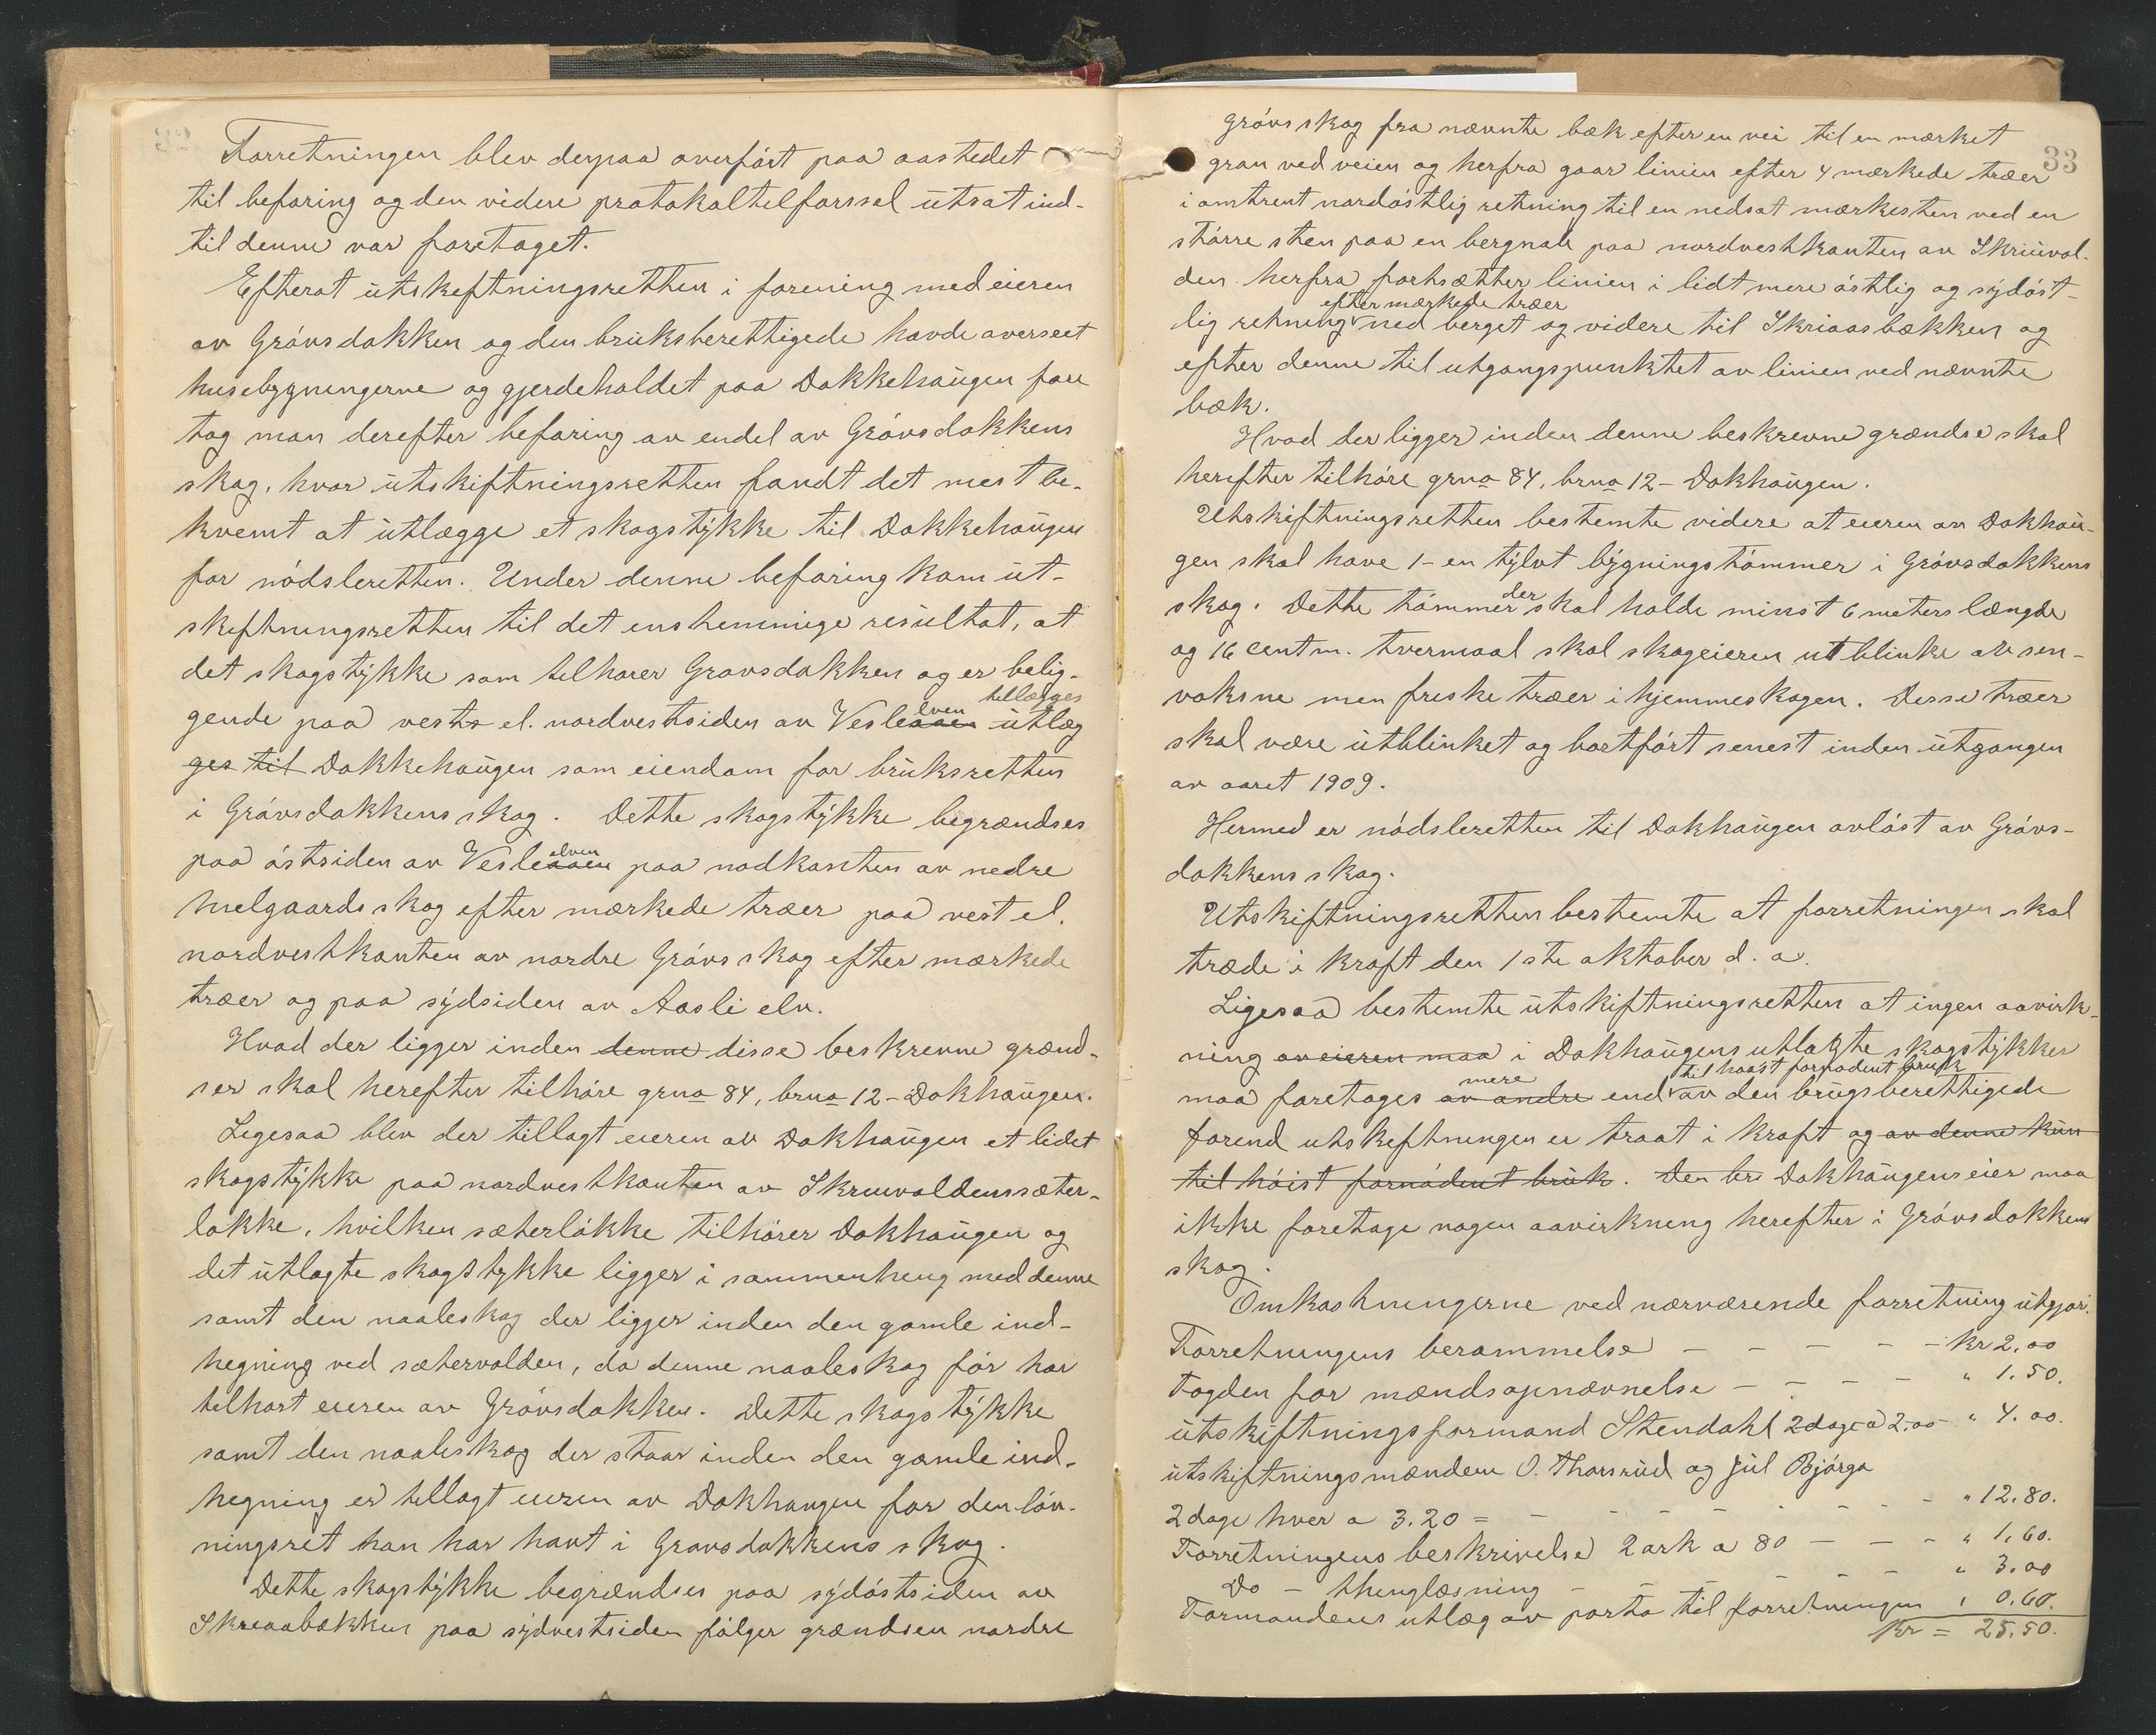 Forretningen blev derpaa overført paa aastedet
til befaring og den videre protokoltilførssel utsat ind-
til denne var foretaget.
Efterat utskiftningsretten i forening med eieren
av Gråvsdokken og den bruksberettigede havde overseet
husebygningerne og gjerdeholdet paa Dokkehaugen fore
tog man derefter befaring av endel av Gråvsdokkens
skog, hvor utskiftningsretten fandt det mest be-
kvemt at utlægge et skogstykke til Dokkehaugen
for nødsleretten. Under denne befaring kom ut-
skiftningsretten til det enstemmige resultat, at
det skogstykke som tilhører Gravsdokken og er belig-
gende paa vest el. nordvestsiden av Vesleelven tillægges
Dokkehaugen som eiendom for bruksretten
i Gråvsdokkens skog. Dette skogstykke begrændses
paa østsiden av Vesleelven paa nodkanten av nedre
Melgaards skog efter mærkede træer paa vest el.
nordvestkanten av nordre Gråvs skog efter mærkede
træer og paa sydsiden av Aasli elv.
Hvad der ligger inden denne disse beskrevne grænd-
ser skal herefter tilhøre grno 84, brno 12 - Dokhaugen.
Ligesaa blev der tillagt eieren av Dokhaugen et lidet
skogstykke paa nordvestkanten av Skriuvoldenssæter-
løkke, hvilken sæterløkke tilhører Dokhaugen og
det utlagte skogstykke ligger i sammenheng med denne
samt den naaleskog der ligger inden den gamle ind-
hegning ved sætervolden, da denne naaleskog før har
tilhørt eieren av Gråvsdokken. Dette skogstykke
samt den naaleskog der staar inden den gamle ind-
hegning er tillagt eieren av Dokhaugen for den løv-
ningsret han har havt i Gravsdokkens skog.
Dette skogstykke begrændses paa sydøstsiden av
Skreaabækken paa sydvestsiden følger grændsen nordre
33
gråvs skog fra nævnte bæk efter en vei til en mærket
gran ved veien og herfra gaar linien efter 4 mærkede træer
i omtrent nordøstlig retning til en nedsat mærkesten ved en
større sten paa en bergnab paa nordvestkanten av Skriuvol-
den. herfra fortsætter linien i lidt mere østlig og sydøst-
lig retning efter mærkede træer ned berget og videre til Skriaasbækken og
efter denne til utgangspunktet av linien ved nævnte
bæk.
Hvad der ligger inden denne beskrevne grændse skal
herefter tilhøre grno 84, brno 12 - Dokhaugen.
Utskiftningsretten bestemte videre at eieren av Dokhau-
gen skal have 1 - en tylvt bygningstømmer i Gråvsdokkens
skog. Dette tømmer der skal holde minst 6 meters længde
og 16 centm. tvermaal skal skogeieren utblinke av sen-
voksne men friske træer i hjemmeskogen. Disse træer
skal være utblinket og bortført senest inden utgangen
av aaret 1909.
Hermed er nødsleretten til Dokhaugen avløst av Gråvs-
dokkens skog.
Utskiftningsretten bestemte at forretningen skal
træde i kraft den 1ste oktober d. a.
Ligesaa bestemte utskiftningsretten at ingen aavirk-
ning av eieren maa i Dokhaugens utlagte skogstykker
maa foretages av andre mere end til høist fornødent bruk av den brugsberettigede
førend utskiftningen er traat i kraft og av denne kun
til høist fornødent bruk. Den br Dokhaugens eier maa
ikke foretage nogen aavirkning herefter i Gråvsdokkens
skog.
Omkostningerne ved nærværende forretning utgjør.
Forretningens berammelse - - - - - kr 2.00
Fogden for mændsopnævnelse - - - - " 1.50.
utskiftningsformand Stendahl 2 dage a 2.00 - " 4.00.
utskiftningsmændene O. Thorsrud og Jul Bjørge
2 dage hver a 3.20 = - - - - - - " 12.80.
Forretningens beskrivelse 2 ark a 80 - - - " 1.60.
Do - thinglæsning - - - - - - " 3.00
Formandens utlæg av porto til forretningen " 0.60.
Kr = 25.50.